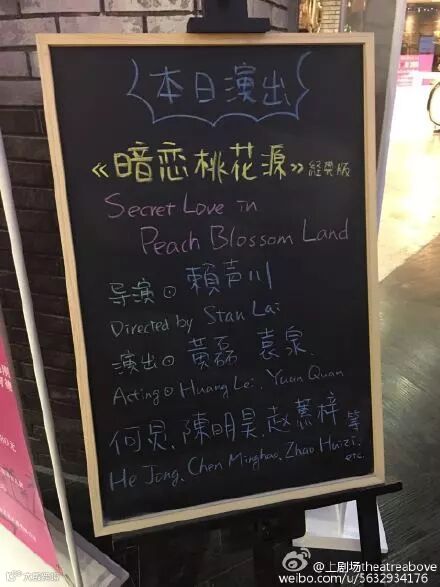 本日演出
《暗恋桃花源》经典版
Secret Love in
Peach Blossom Land
导演⊙ 賴声川
Directed by Stan Lai
演出⊙ 黄磊 袁泉
Acting⊙ Huang Lei, Yuan Quan
何炅、陳明昊、赵蕙梓 等
He Jong, Chen Minghao, Zhao Huizi, etc.
@上剧场theatreabove
weibo.com/u/5632934176